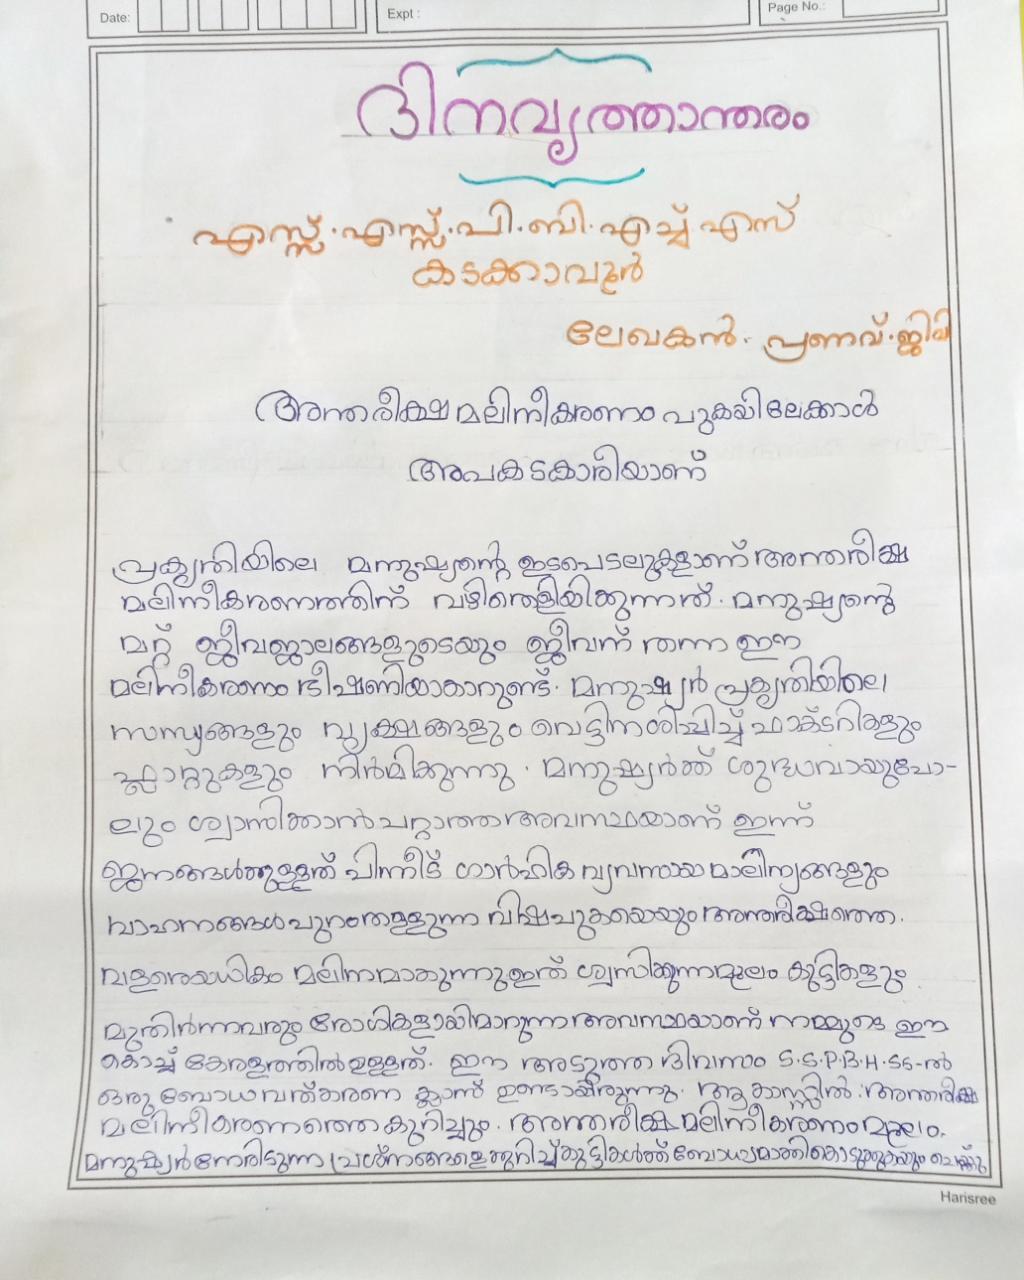 Date:
Expt :
Page No.:
ദിനവൃത്താന്തരം
എസ്സ്.എസ്സ്.പി.ബി.എച്ച് എസ്
കടക്കാവൂർ
ലേഖകൻ. പ്രണവ്.ജിവി
അന്തരീക്ഷ മലിനീകരണം പുകയിലേക്കാൾ
അപകടകാരിയാണ്
പ്രകൃതിയിലെ മനുഷ്യന്റെ ഇടപെടലുകളാണ് അന്തരീക്ഷ
മലിനീകരണത്തിന് വഴിതെളിയിക്കുന്നത്. മനുഷ്യന്റെ
മറ്റ് ജീവജാലങ്ങളുടെയും ജീവന് തന്ന ഈ
മലിനീകരണം ഭീഷണിയാകാറുണ്ട്. മനുഷ്യർ പ്രകൃതിയിലെ
സസ്യങ്ങളും വൃക്ഷങ്ങളും വെട്ടിനശിപ്പിച്ച് ഫാക്ടറികളും
ഫ്ലാറ്റുകളും നിർമിക്കുന്നു. മനുഷ്യർത്ത് ശുദ്ധവായുപോ-
ലും ശ്വാസിക്കാൻ പറ്റാത്ത അവസ്ഥയാണ് ഇന്ന്
ജനങ്ങൾക്കുള്ളത് പിന്നീട് ഗാർഹിക വ്യവസായ മാലിന്യങ്ങളും
വാഹനങ്ങൾ പുറംതള്ളുന്ന വിഷപുകയെയും അന്തരീക്ഷത്തെ.
വളരെയധികം മലിനമാകുന്നു ഇത് ശ്വസിക്കുന്നമൂലം കുട്ടികളും
മുതിർന്നവരും രോഗികളായിമാറുന്ന അവസ്ഥയാണ് നമ്മുടെ ഈ
കൊച്ച് കേരളത്തിൽ ഉള്ളത്. ഈ അടുത്ത ദിവസം S.S.P.B.H.SS-ൽ
ഒരു ബോധവത്കരണ ക്ലാസ് ഉണ്ടായിരുന്നു. ആ ക്ലാസ്സിൽ അന്തരീക്ഷ
മലിനീകരണത്തെ കുറിച്ചും. അന്തരീക്ഷ മലിനീകരണം മൂലം.
മനുഷ്യർ നേരിടുന്ന പ്രശ്നങ്ങളെകുറിച്ച് കുട്ടികൾത്ത് ബോധ്യമാത്തികൊടുത്തുകയും ചെയ്തു
Harisree